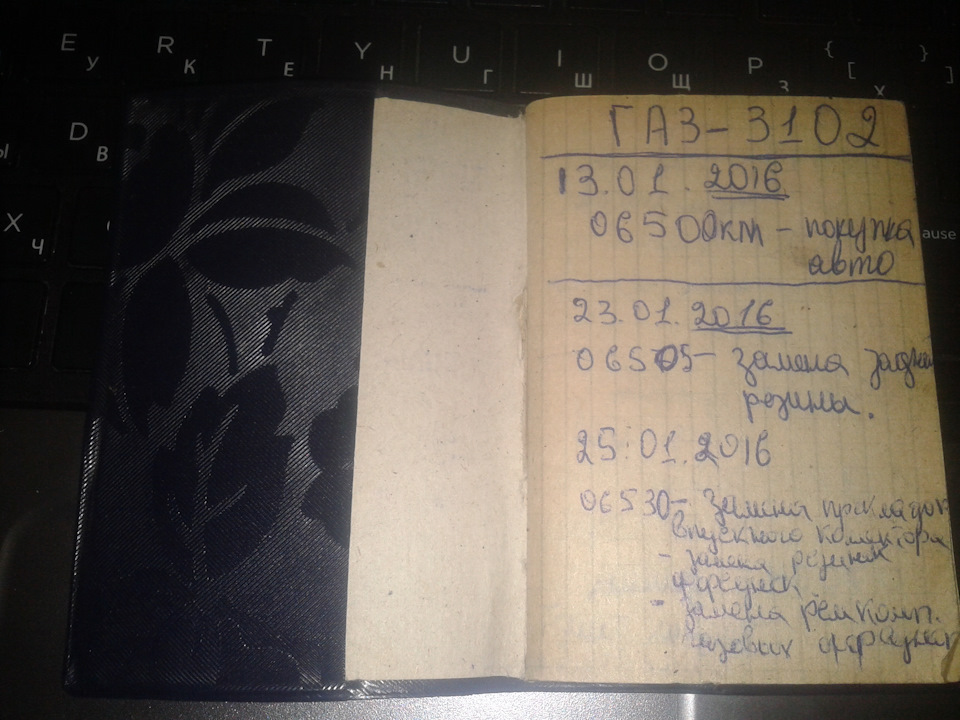 E У R К T Е Y Н U Г I Ш O Щ P З { [ Х } ]
Ы D В
Х Ч
ause
ГАЗ-3102
13.01.2016
06500км - покупка
авто
23.01.2016
06505- замена задней
резины.
25.01.2016
06530- Замена прокладок
впускного коллектора
- замена резинок
форсунок
- замена ремкомп.
газовых форсунок